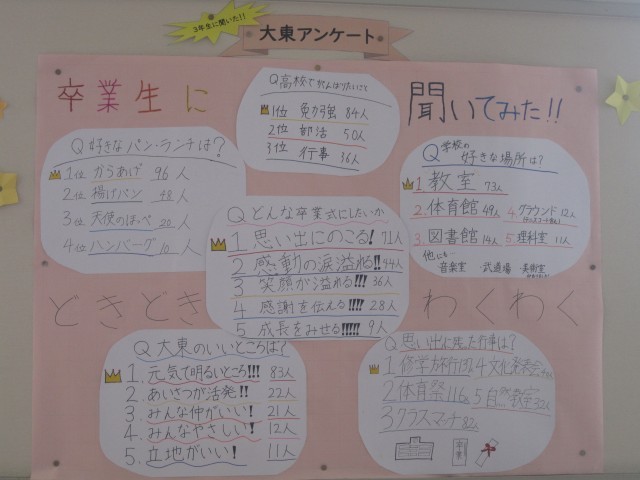 3年生に聞いた!!
大東アンケート
卒業生に
聞いてみた!!
Q高校でがんばりたいこと
1位 勉強 84人
2位 部活 50人
3位 行事 36人
Q好きなパン・ランチは?
1位 からあげ 96人
2位 揚げパン 48人
3位 天使のほっぺ 20人
4位 ハンバーグ 10人
Q学校の好きな場所は?
1.教室 73人
2.体育館 49人 4.グラウンド 12人
3.図書館 14人 5.理科室 11人
他にも…
音楽室 ・武道場 ・美術室
Qどんな卒業式にしたいか
1 思い出にのこる! 71人
2 感動の涙溢れる!! 44人
3 笑顔が溢れる!!! 36人
4 感謝を伝える!!!! 28人
5 成長をみせる!!!!! 9人
どきどき
わくわく
Q大東のいいところは?
1.元気で明るいところ!!! 83人
2.あいさつが活発!! 22人
3.みんな仲がいい! 21人
4.みんなやさしい! 12人
5.立地がいい! 11人
Q思い出に残った行事は?
1修学旅行 4文化発表会
2体育祭 116人 5自然教室 32人
3クラスマッチ 82人